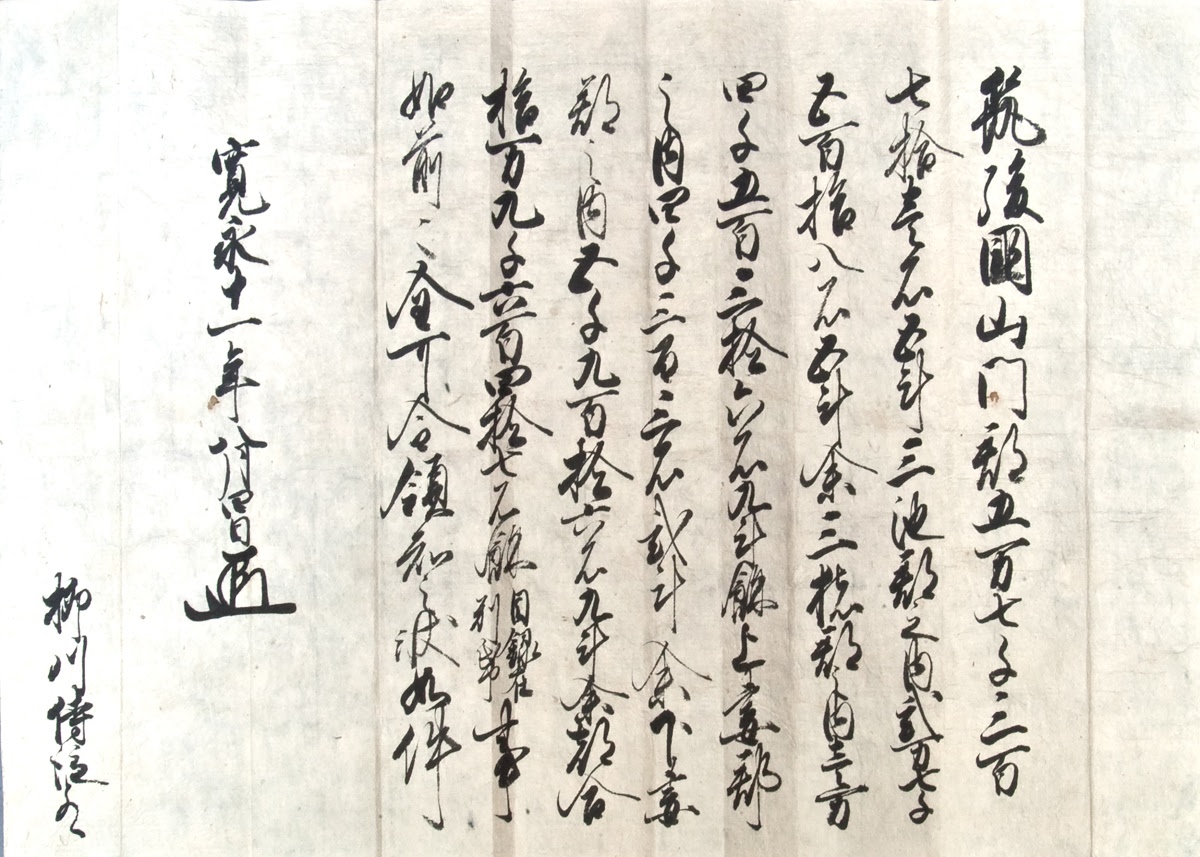 筑後國山門郡五万七千三百
七拾壱石五斗三池郡之内弐万七千
五百拾八石五斗余三潴郡之内壱万
四千五百三拾六石九斗餘上妻郡
之内四千三百三石弐斗余下妻
郡之内五千九百拾六石九斗余都合
拾万九千六百四拾七石餘目録在別紙事
如前々全可令領知之状如件
寛永十一年八月四日
柳川侍従とのへ